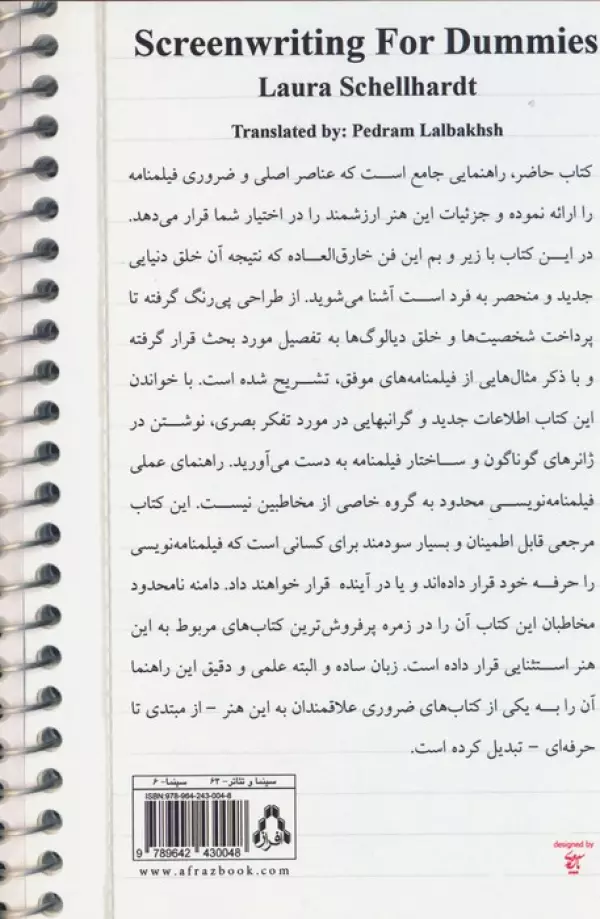 Screenwriting For Dummies
Laura Schellhardt
Translated by: Pedram Lalbakhsh
کتاب حاضر، راهنمایی جامع است که عناصر اصلی و ضروری فیلمنامه
را ارائه نموده و جزئیات این هنر ارزشمند را در اختیار شما قرار می‌دهد.
در این کتاب با زیر و بم این فن خارق‌العاده که نتیجه آن خلق دنیایی
جدید و منحصر به فرد است آشنا می‌شوید. از طراحی پی‌رنگ گرفته تا
پرداخت شخصیت‌ها و خلق دیالوگ‌ها به تفصیل مورد بحث قرار گرفته
و با ذکر مثال‌هایی از فیلمنامه‌های موفق، تشریح شده است. با خواندن
این کتاب اطلاعات جدید و گرانبهایی در مورد تفکر بصری، نوشتن در
ژانرهای گوناگون و ساختار فیلمنامه به دست می‌آورید. راهنمای عملی
فیلمنامه‌نویسی محدود به گروه خاصی از مخاطبین نیست. این کتاب
مرجعی قابل اطمینان و بسیار سودمند برای کسانی است که فیلمنامه‌نویسی
را حرفه خود قرار داده‌اند و یا در آینده قرار خواهند داد. دامنه نامحدود
مخاطبان این کتاب آن را در زمره پرفروش‌ترین کتاب‌های مربوط به این
هنر استثنایی قرار داده است. زبان ساده و البته علمی و دقیق این راهنما
آن را به یکی از کتاب‌های ضروری علاقمندان به این هنر – از مبتدی تا
حرفه‌ای – تبدیل کرده است.
سینما و تئاتر- ۶۲ سینما- ۶
ISBN:978-964-243-004-8
افراز
9 789642 430048
www.afrazbook.com
designed by